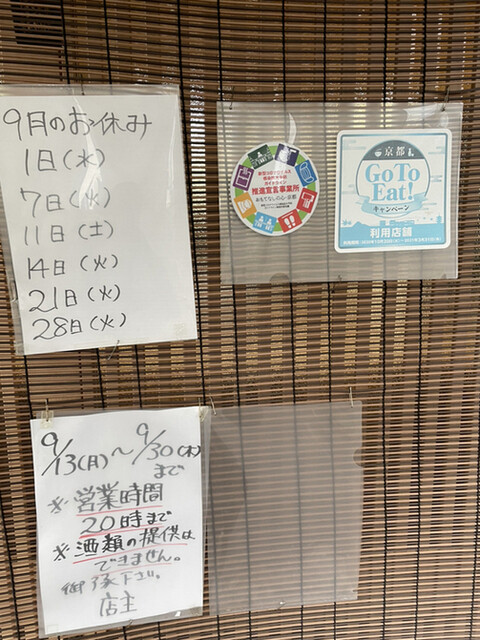 9月のお休み
1日(水)
7日(火)
11日(土)
14日(火)
21日(火)
28日(火)
推進宣言事業所
おもてなしの心・京都
京都
Go To
Eat!
キャンペーン
利用店舗
9/13(月)〜9/30(木)
まで
※営業時間
20時まで
※酒類の提供は
できません。
御了承下さい。
店主